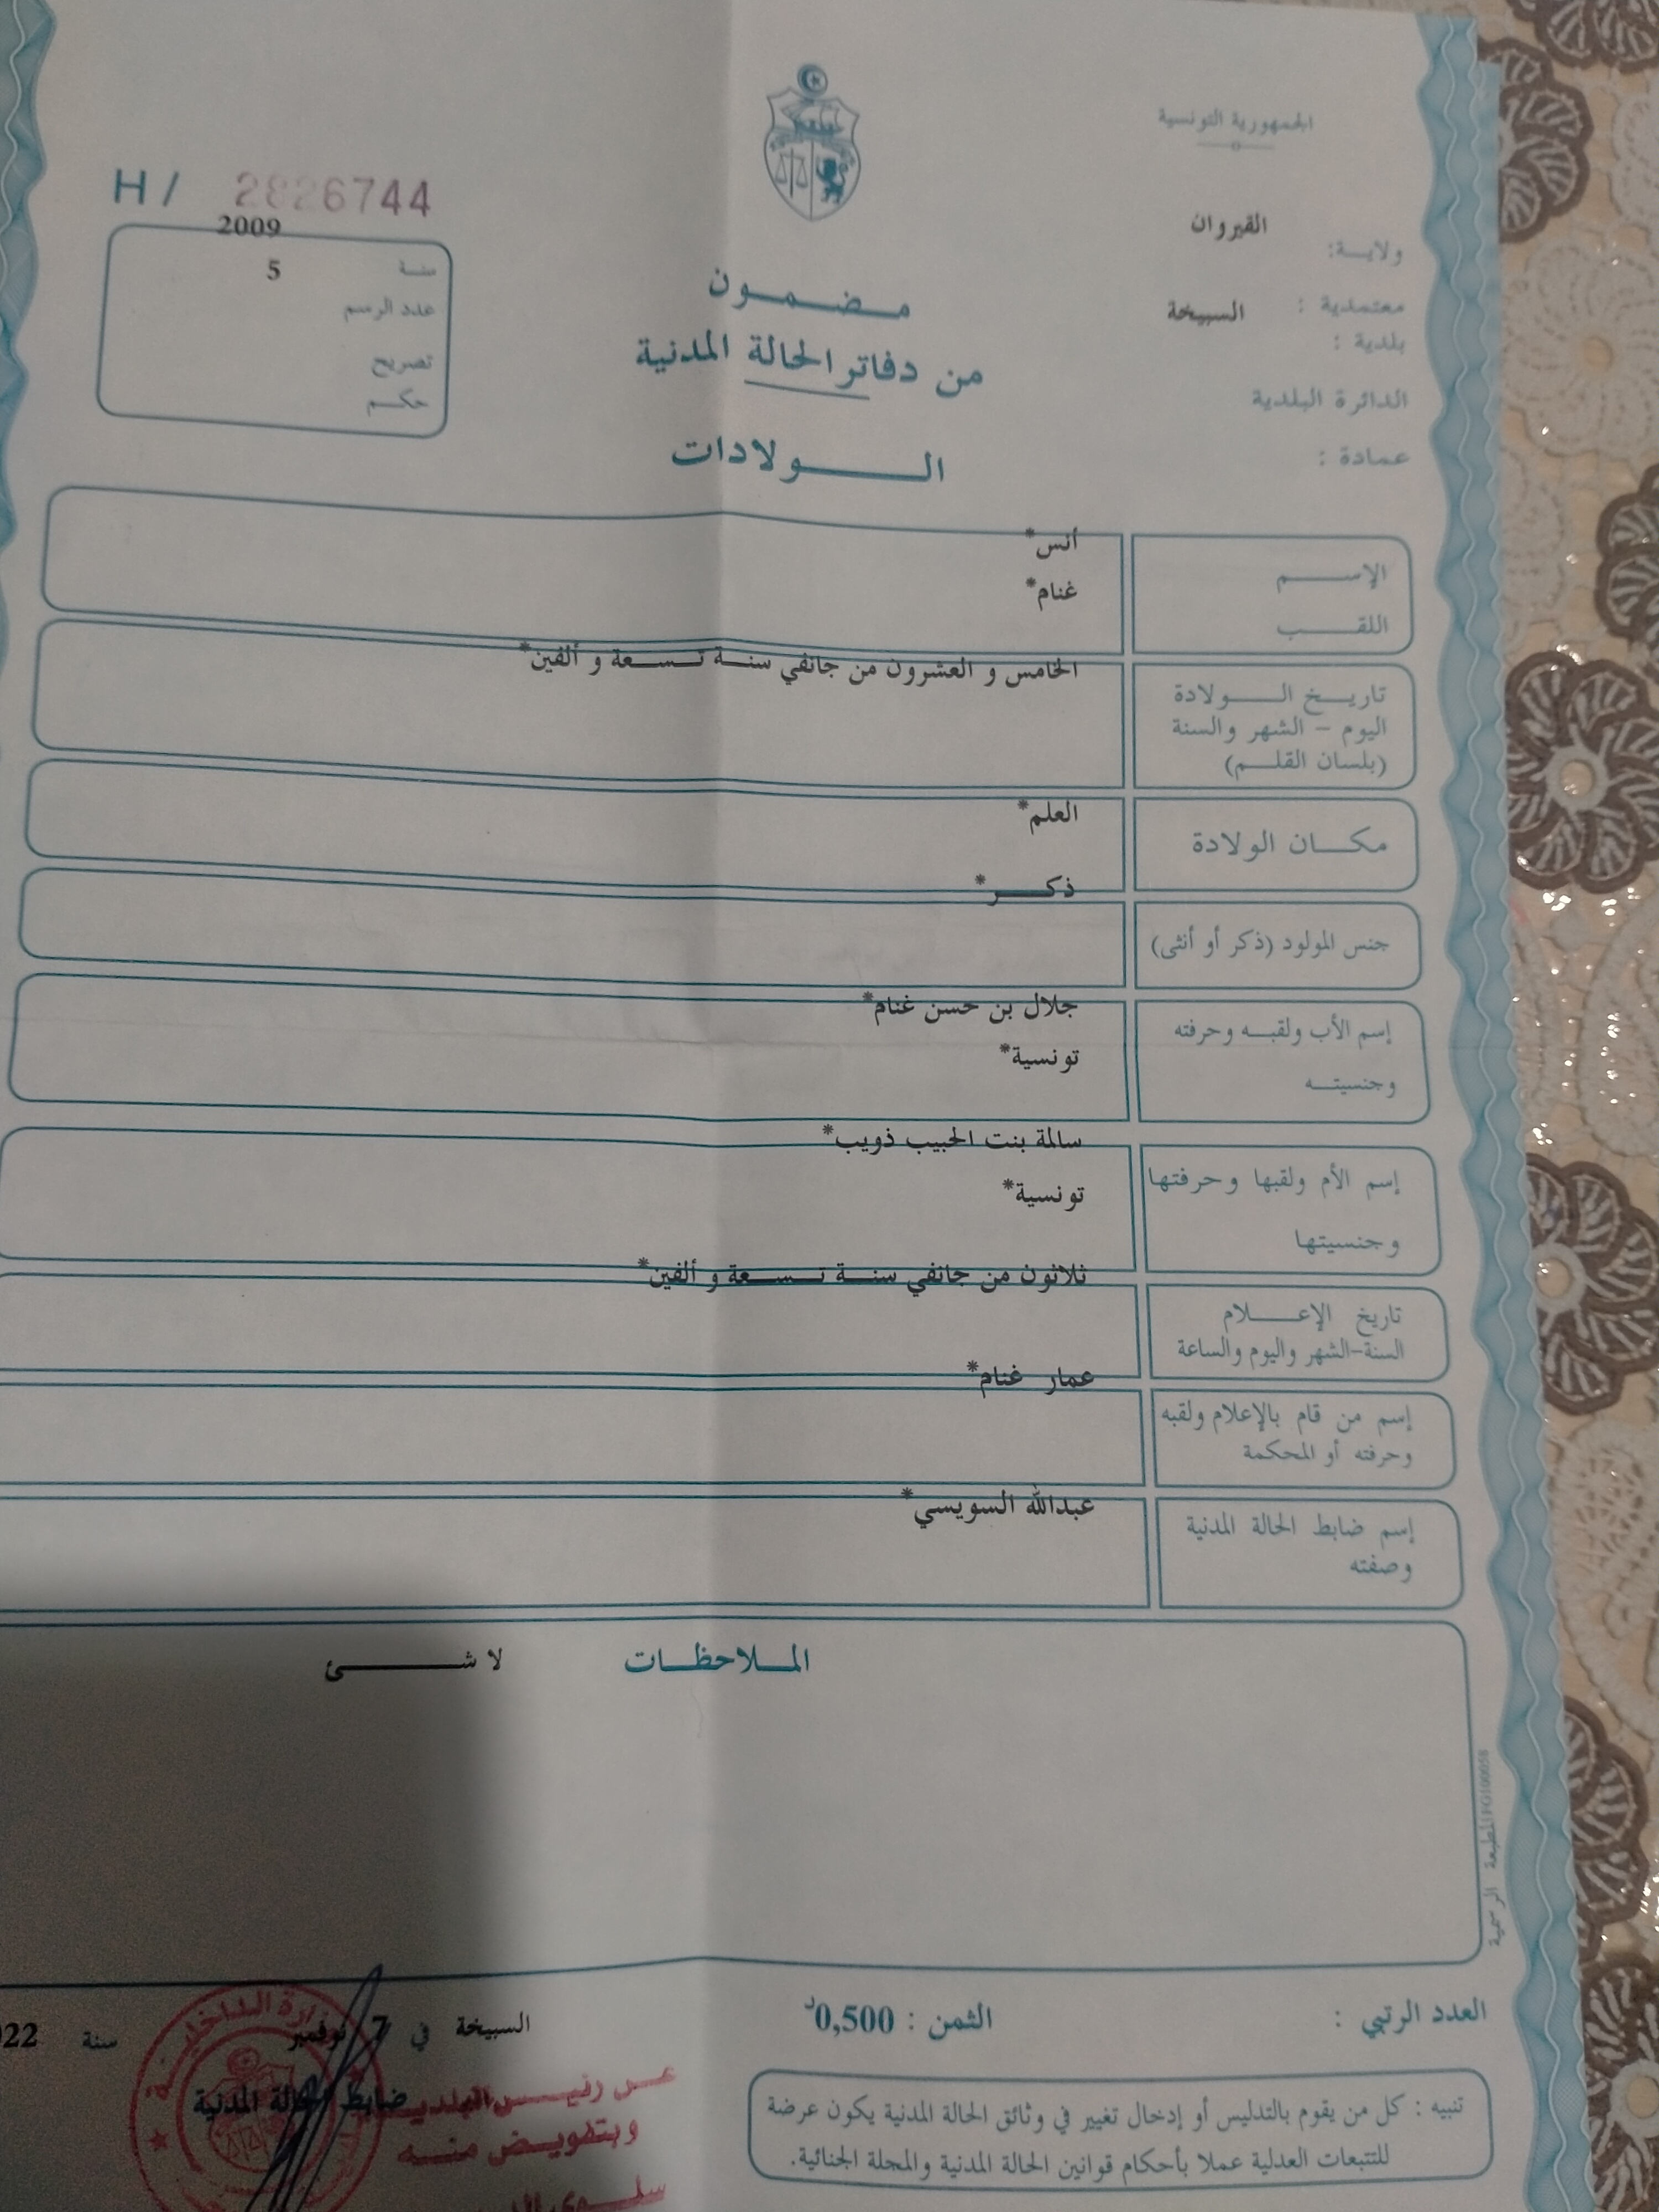 الجمهورية التونسية
H/ 2826744
ولاية: القيروان
معتمدية : السبيخة
بلدية :
الدائرة البلدية
عمادة :
2009
سنة 5
عدد الرسم
تصريح
حكم
مضمون
من دفاتر الحالة المدنية
الولادات
الإسم أنس*
اللقب غنام*
تاريخ الولادة الخامس و العشرون من جانفي سنة تسعة و ألفين*
اليوم - الشهر والسنة
(بلسان القلم)
مكان الولادة العلم*
جنس المولود (ذكر أو أنثى) ذكر*
إسم الأب ولقبه وحرفته جلال بن حسن غنام*
وجنسيته تونسية*
إسم الأم ولقبها وحرفتها سالمة بنت الحبيب ذويب*
وجنسيتها تونسية*
تاريخ الإعلام ثلاثون من جانفي سنة تسعة و ألفين*
السنة-الشهر واليوم والساعة
إسم من قام بالإعلام ولقبه عمار غنام*
وحرفته أو المحكمة
إسم ضابط الحالة المدنية عبدالله السويسي*
وصفته
الملاحظات لا شئ
المطبعة الرسمية
العدد الرتبي :
الثمن : 0,500د
السبيخة في 7 نوفمبر سنة 22
ضابط الحالة المدنية
عن رئيس البلدية
وبتفويض منه
وزارة الداخلية
تنبيه : كل من يقوم بالتدليس أو إدخال تغيير في وثائق الحالة المدنية يكون عرضة
للتتبعات العدلية عملا بأحكام قوانين الحالة المدنية والمجلة الجنائية.